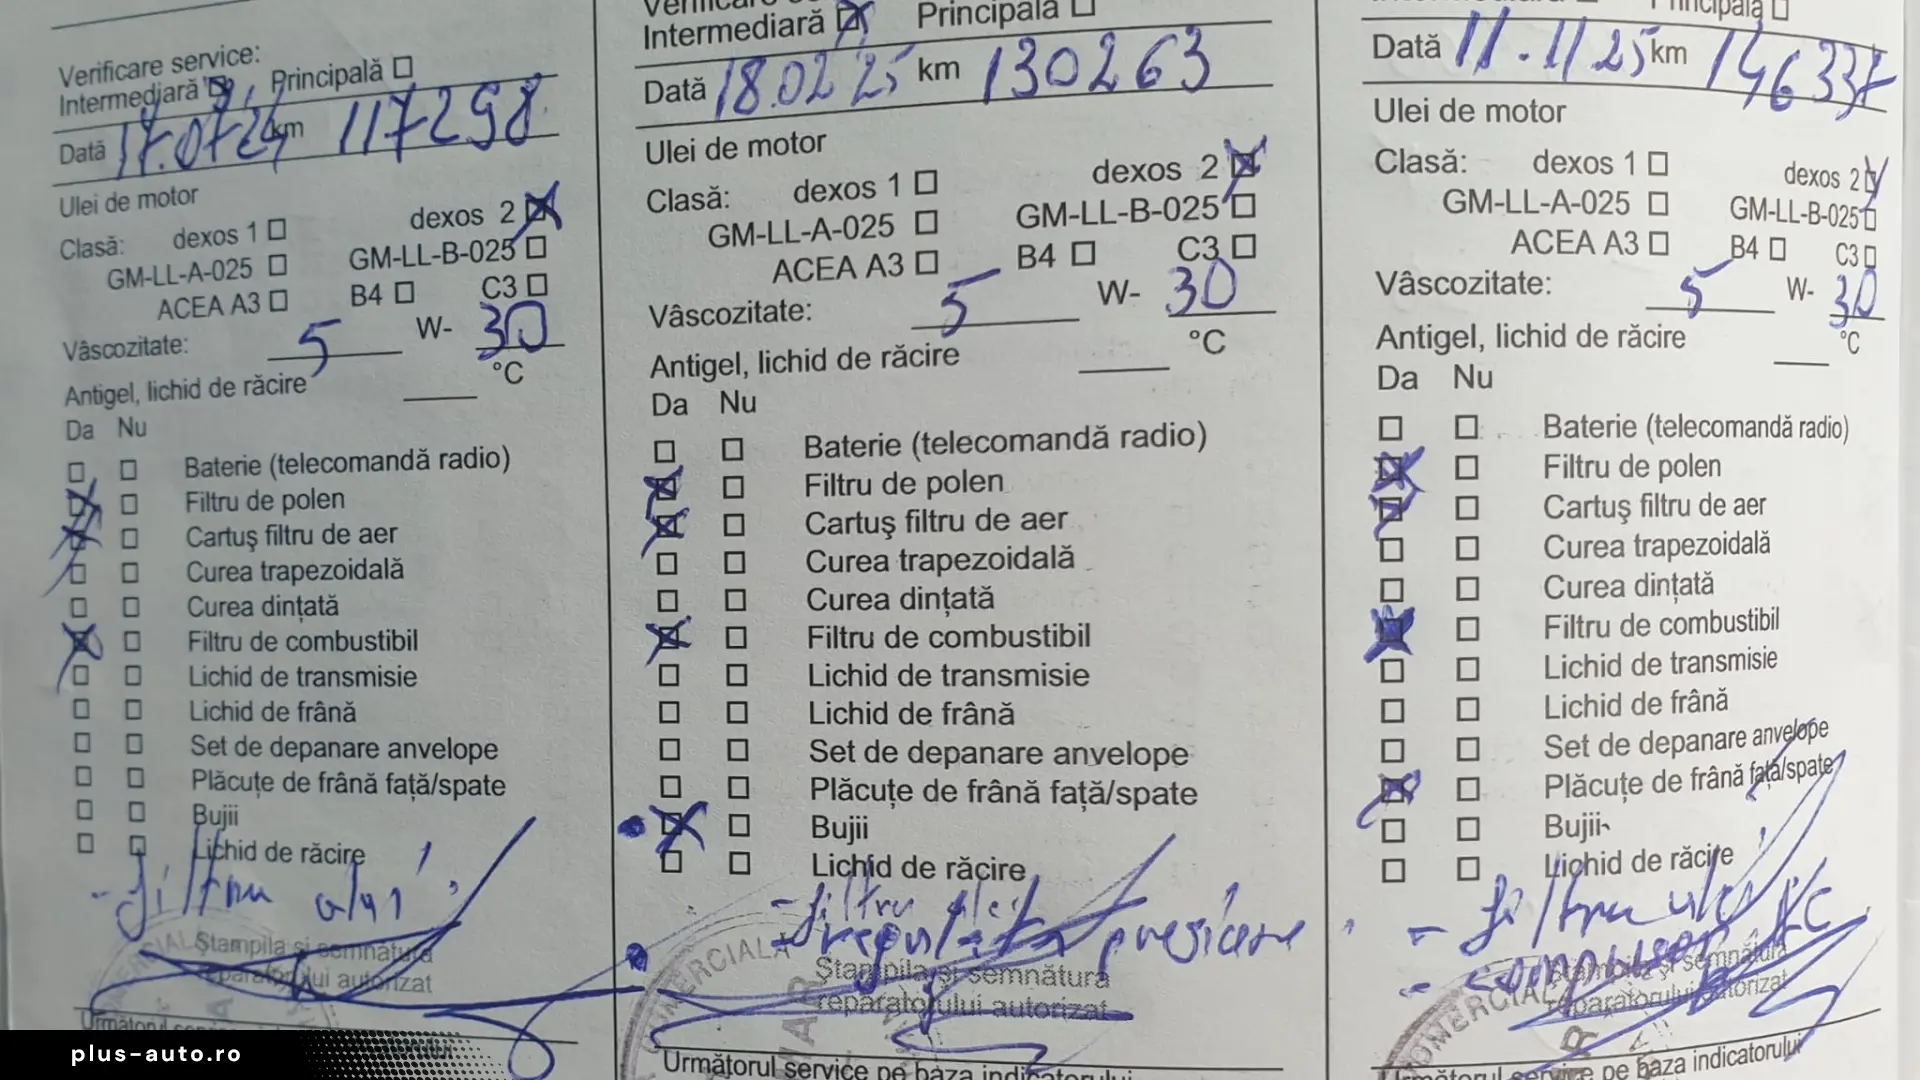 Verificare service:
Intermediară Principală
Dată 17.07.24 km 117298
Ulei de motor
Clasă: dexos 1 dexos 2
GM-LL-A-025 GM-LL-B-025
ACEA A3 B4 C3
Vâscozitate: 5 W- 30
Antigel, lichid de răcire °C
Da Nu
Baterie (telecomandă radio)
Filtru de polen
Cartuş filtru de aer
Curea trapezoidală
Curea dinţată
Filtru de combustibil
Lichid de transmisie
Lichid de frână
Set de depanare anvelope
Plăcuţe de frână faţă/spate
Bujii
Lichid de răcire
- filtru ulei
Ştampila şi semnătura
reparatorului autorizat
Intermediară Principală
Dată 18.02 25 km 130263
Ulei de motor
Clasă: dexos 1 dexos 2
GM-LL-A-025 GM-LL-B-025
ACEA A3 B4 C3
Vâscozitate: 5 W- 30
Antigel, lichid de răcire °C
Da Nu
Baterie (telecomandă radio)
Filtru de polen
Cartuş filtru de aer
Curea trapezoidală
Curea dinţată
Filtru de combustibil
Lichid de transmisie
Lichid de frână
Set de depanare anvelope
Plăcuţe de frână faţă/spate
Bujii
Lichid de răcire
- filtru ulei
presiune
COMERCIALA
Ştampila şi semnătura
reparatorului autorizat
Următorul service pe baza indicatorului
Principală
Dată 11.11 25 km 146337
Ulei de motor
Clasă: dexos 1 dexos 2
GM-LL-A-025 GM-LL-B-025
ACEA A3 B4 C3
Vâscozitate: 5 W- 30
Antigel, lichid de răcire °C
Da Nu
Baterie (telecomandă radio)
Filtru de polen
Cartuş filtru de aer
Curea trapezoidală
Curea dinţată
Filtru de combustibil
Lichid de transmisie
Lichid de frână
Set de depanare anvelope
Plăcuţe de frână faţă/spate
Bujii
Lichid de răcire
- filtru ulei
semnătura
reparatorului autorizat
Următorul service pe baza indicatorului
plus-auto.ro